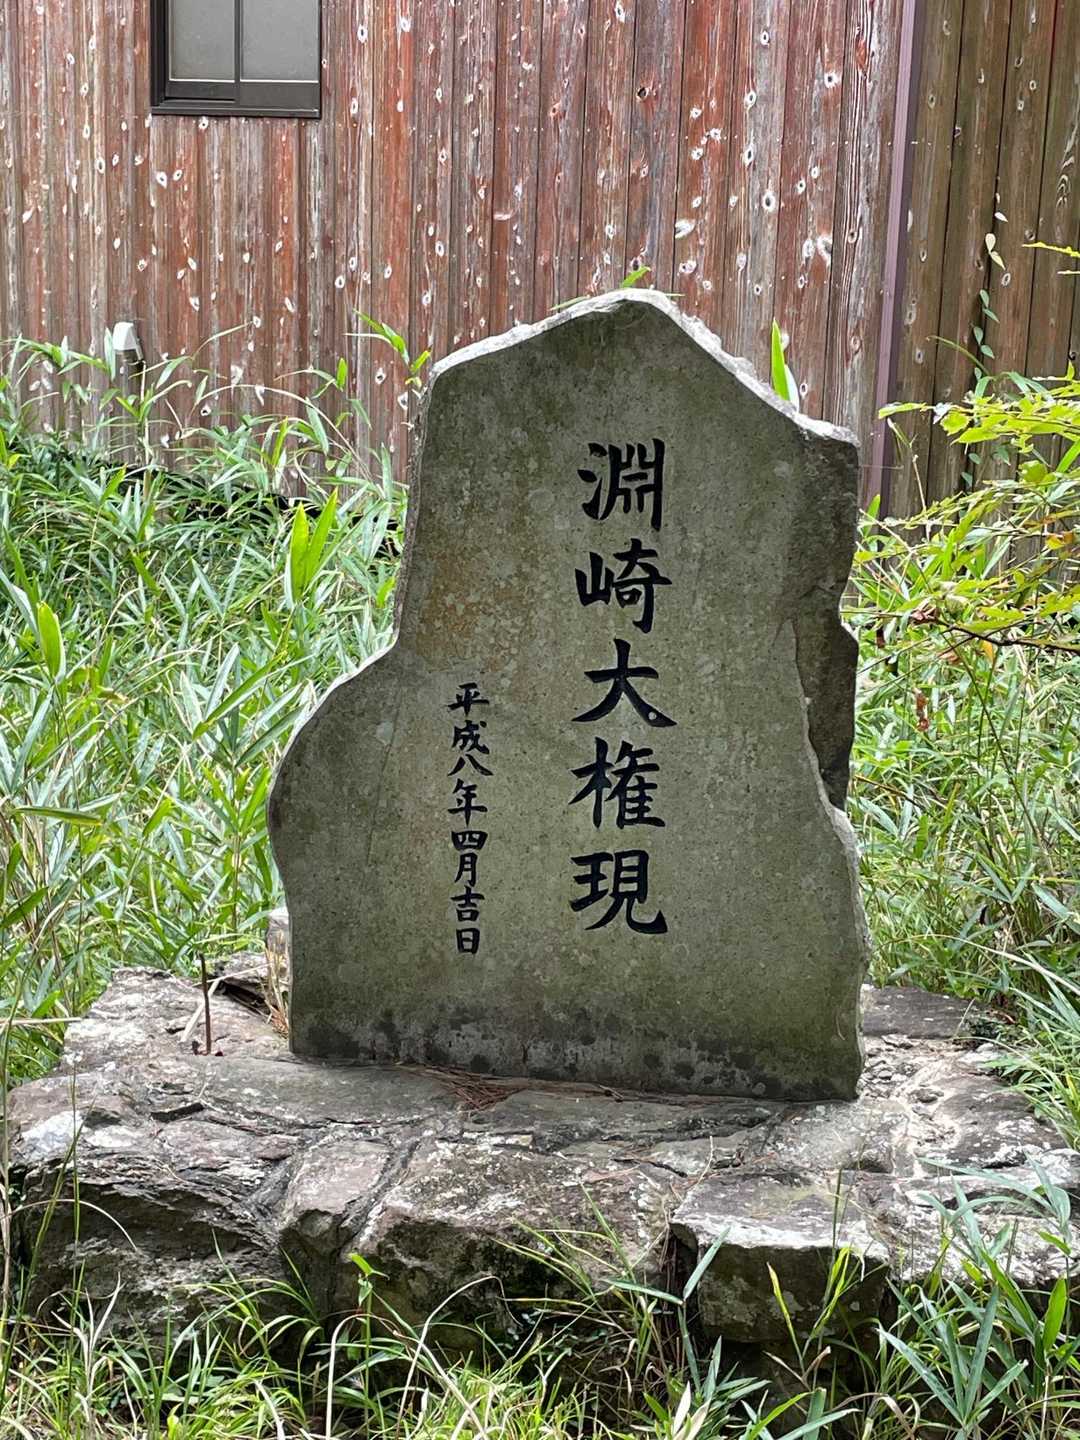 淵崎大権現
平成八年四月吉日